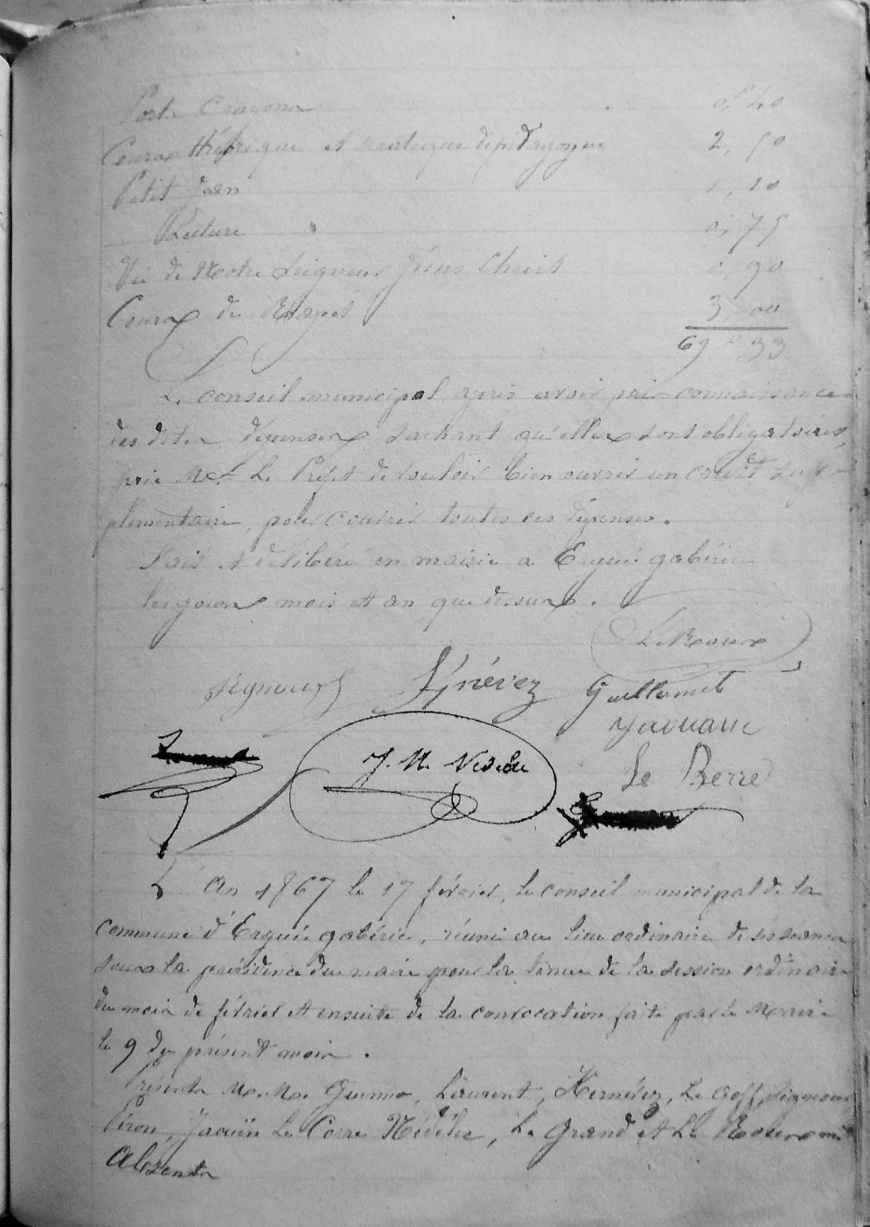 Porte Crayons 0,40
Cours théorique et pratique de pédagogie 2,50
Petit Jean 1,10
Lecture " 0,75
Vie de Notre Seigneur Jésus Christ 0,90
Cours de 3,00
69 f 33
Le conseil municipal après avoir pris connaissance
des dites dépenses sachant qu'elles sont obligatoires,
prie Mr Le Préfet de vouloir bien ouvrir un crédit supp-
plémentaire, pour couvrir toutes ces dépenses.
Fait et délibéré en mairie a Ergué gabéric
les jours mois et an que dessus.
Le Roux
Signour Kernévez Guillamet
Jaouanc
J. M. Nédélec Le Berre
L'An 1867 le 17 février, le conseil municipal de la
commune d'Ergué gabéric, réuni au lieu ordinaire de ses séances
sous la présidence du maire pour la tenue de la session ordinaire
du mois de février et ensuite de la convocation faite par le Maire
le 9 du présent mois.
Présents M.M. Laurent, Kernévez, Le Goff, Signour
Piron, Jaouën Le Corre Nédélec, Le Grand et Le Roux
Absents